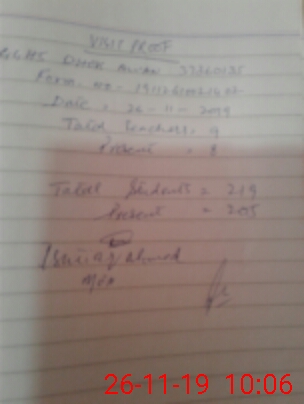 VISIT PROOF
GGHS DHOK AWAN
Form. no -
Date = 26-11-2019
Total Teachers = 9
Present = 8
Total Students = 219
Present = 205
Ishtiaq Ahmad
26-11-19 10:06